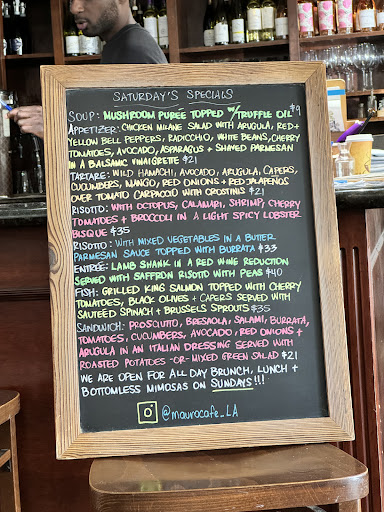 SATURDAY'S SPECIALS
SOUP: MUSHROOM PUREE TOPPED W/TRUFFLE OIL $9
APPETIZER: CHICKEN MILANE SALAD WITH ARUGULA, RED+
YELLOW BELL PEPPERS, RADICCHIO, WHITE BEANS, CHERRY
TOMATOES, AVOCADO, ASPARAGUS + SHAVED PARMESAN
IN A BALSAMIC VINAIGRETTE $21
TARTARE: WILD HAMACHI, AVOCADO, ARUGULA, CAPERS,
CUCUMBERS, MANGO, RED ONIONS + RED JALAPEÑOS
OVER TOMATO CARPACCIO WITH CROSTINIS $21
RISOTTO: WITH OCTOPUS, CALAMARI, SHRIMP, CHERRY
TOMATOES + BROCCOLI IN A LIGHT SPICY LOBSTER
BISQUE $35
RISOTTO: WITH MIXED VEGETABLES IN A BUTTER
PARMESAN SAUCE TOPPED WITH BURRATA $33
ENTRÉE: LAMB SHANK IN A RED WINE REDUCTION
SERVED WITH SAFFRON RISOTTO WITH PEAS $40
FISH: GRILLED KING SALMON TOPPED WITH CHERRY
TOMATOES, BLACK OLIVES + CAPERS SERVED WITH
SAUTÉED SPINACH + BRUSSELS SPROUTS $35
SANDWICH: PROSCIUTTO, BRESAOLA, SALAMI, BURRATA,
TOMATOES, CUCUMBERS, AVOCADO, RED ONIONS +
ARUGULA IN AN ITALIAN DRESSING SERVED WITH
ROASTED POTATOES -OR- MIXED GREEN SALAD $21
WE ARE OPEN FOR ALL DAY BRUNCH, LUNCH +
BOTTOMLESS MIMOSAS ON SUNDAYS!!!
@maurocafe_LA